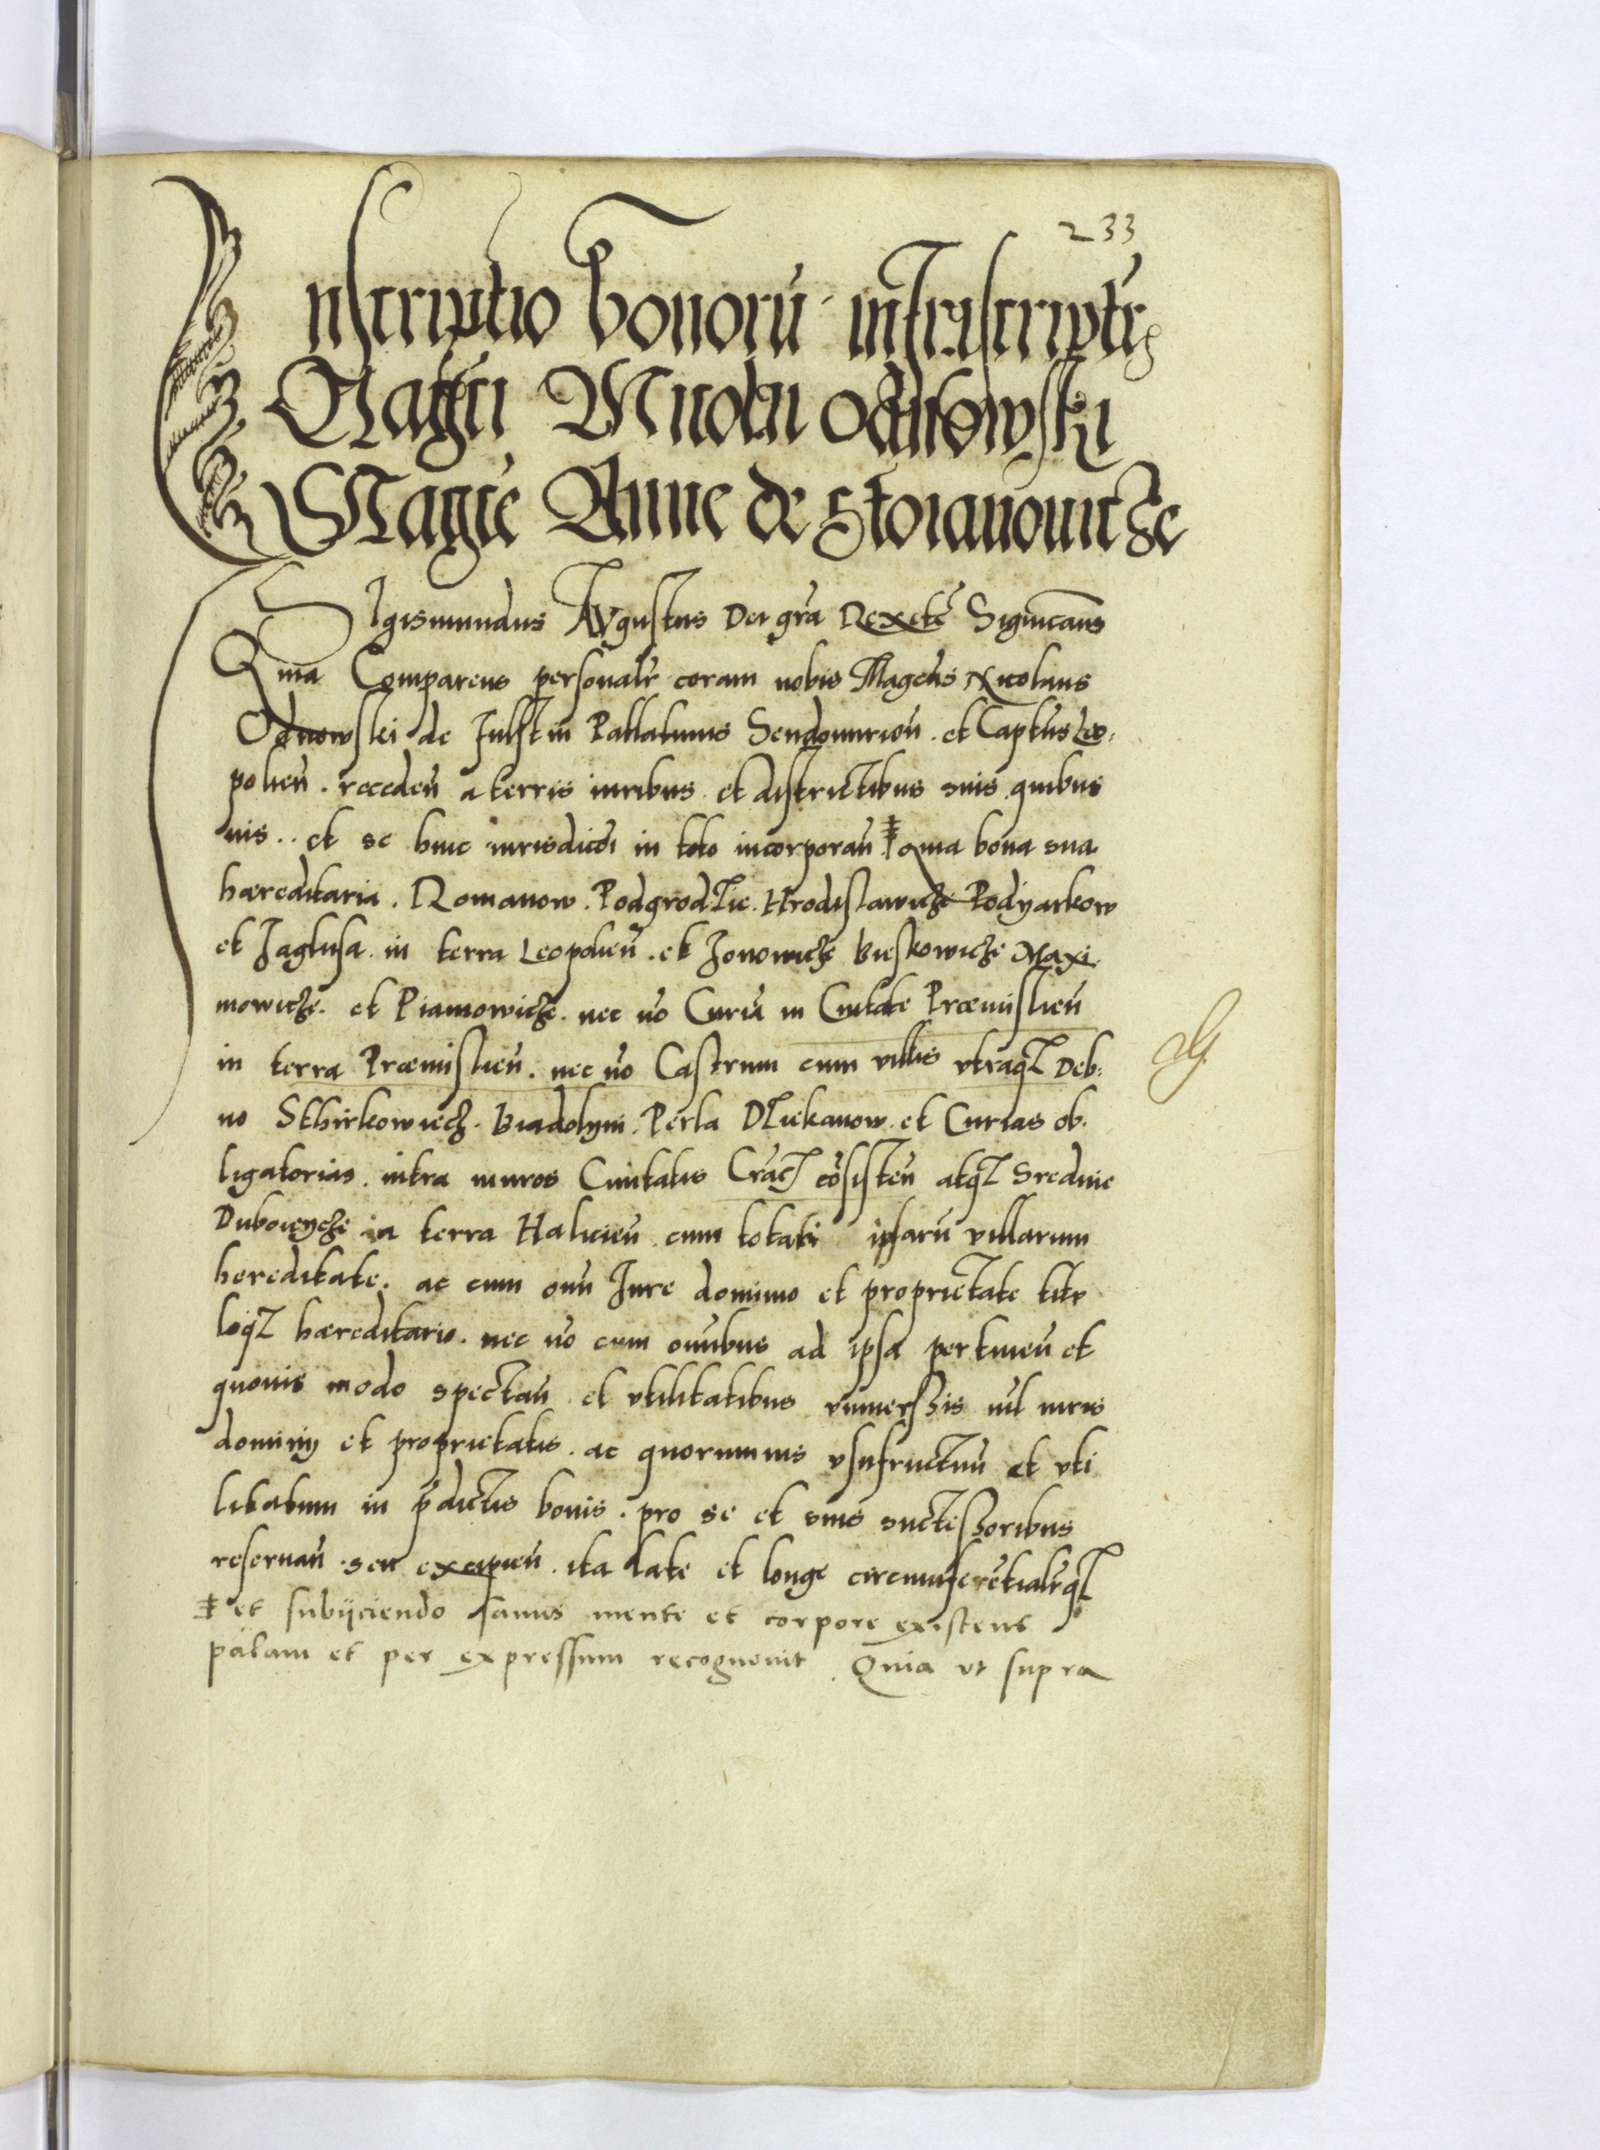 233
Inscriptio bonorū infrascriptr
Magci Nicolai Odnowski
Magce Anne de Stoianovicze
Sigismundus Augustus Dei gra Rex etc Significam̄s
Quia Comparens personalr coram nobis Magcus Nicolaus
Odnowski de Fulstin Pallatinus Sendomirien̄. et Captūs Leo-
polien̄. receden̄ a terris iuribus et districtibus suis quibus
uis.. et se huic iurisdictōi in toto incorporan̄ ‡ Quia bona sua
hæreditaria. Romanow. Podgrodzie. Hrodislawicze Podyarkow
et Jaglusa in terra Leopolien̄. et Jonowicze Bieskowicze Maxi
mowicze. et Pianowicze. nec nō Curia in Ciuitate Præmislien̄
in terra Præmislien̄. nec nō Castrum cum villis vtraqz Deb-
no Sthirkowiecz. Biadolyni. Perla Dziekanow. et Curias ob.
ligatorias. intra muros Ciuitatis Crac̄ cōsisten̄ atqz Srednie
Duboweycze in terra Halicien̄ cum totali ipsarū villarum
hereditate. ac cum omni Jure dominio et proprietate titu
loqz hæreditario. nec nō cum omnibus ad ipsa pertinen̄ et
quouis modo spectan̄ et vtilitatibus vniuersis nil iuris
dominij et proprietatis. ac quorumuis vsufructuū et vti
litatum in p̄dictis bonis. pro se et suis successoribus
reseruan̄. seu excipien̄. ita late et longe circumferētialrqz
‡ et subijciendo sanus mente et corpore existens
palam et per expressum recognouit. Quia vt supra